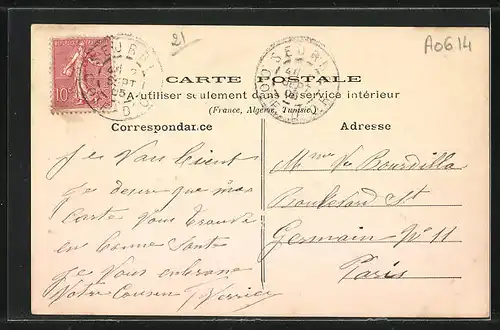 21
A0614
10
SEURRE
SEURRE
CARTE POSTALE
A utiliser seulement dans le service intérieur
(France, Algérie, Tunisie)
Correspondance
Adresse
Je desire que ma
Carte Vous trouve
en bonne Santé
Je Vous embrasse
Votre Cousin Verrier
Mme Ve Bourdilla
Boulevard St
Germain N° 11
Paris